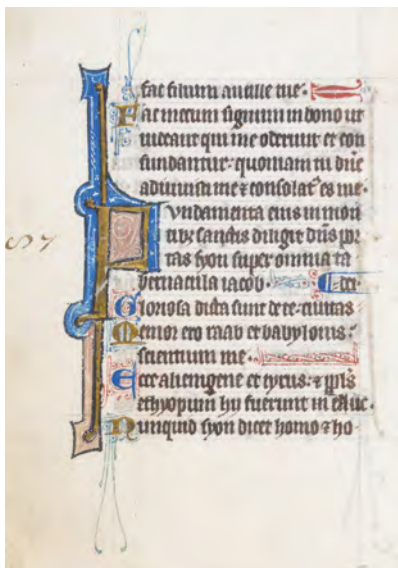 fac filium ancille tue.
Fac mecum signum in bono ut
uideant qui me oderunt et con
fundantur: quoniam tu dñe
adiuuisti me ⁊ consolat' es me.
Fundamenta eius in mon
tibz sanctis diligit dñs por
tas syon super omnia ta
bernacula iacob. dei.
Gloriosa dicta sunt de te: ciuitas
Memor ero raab et babylonis:
scientium me.
Ecce alienigene et tyrus: ⁊ ppls
ethyopum hij fuerunt
Nunquid syon dicet homo ⁊ ho-